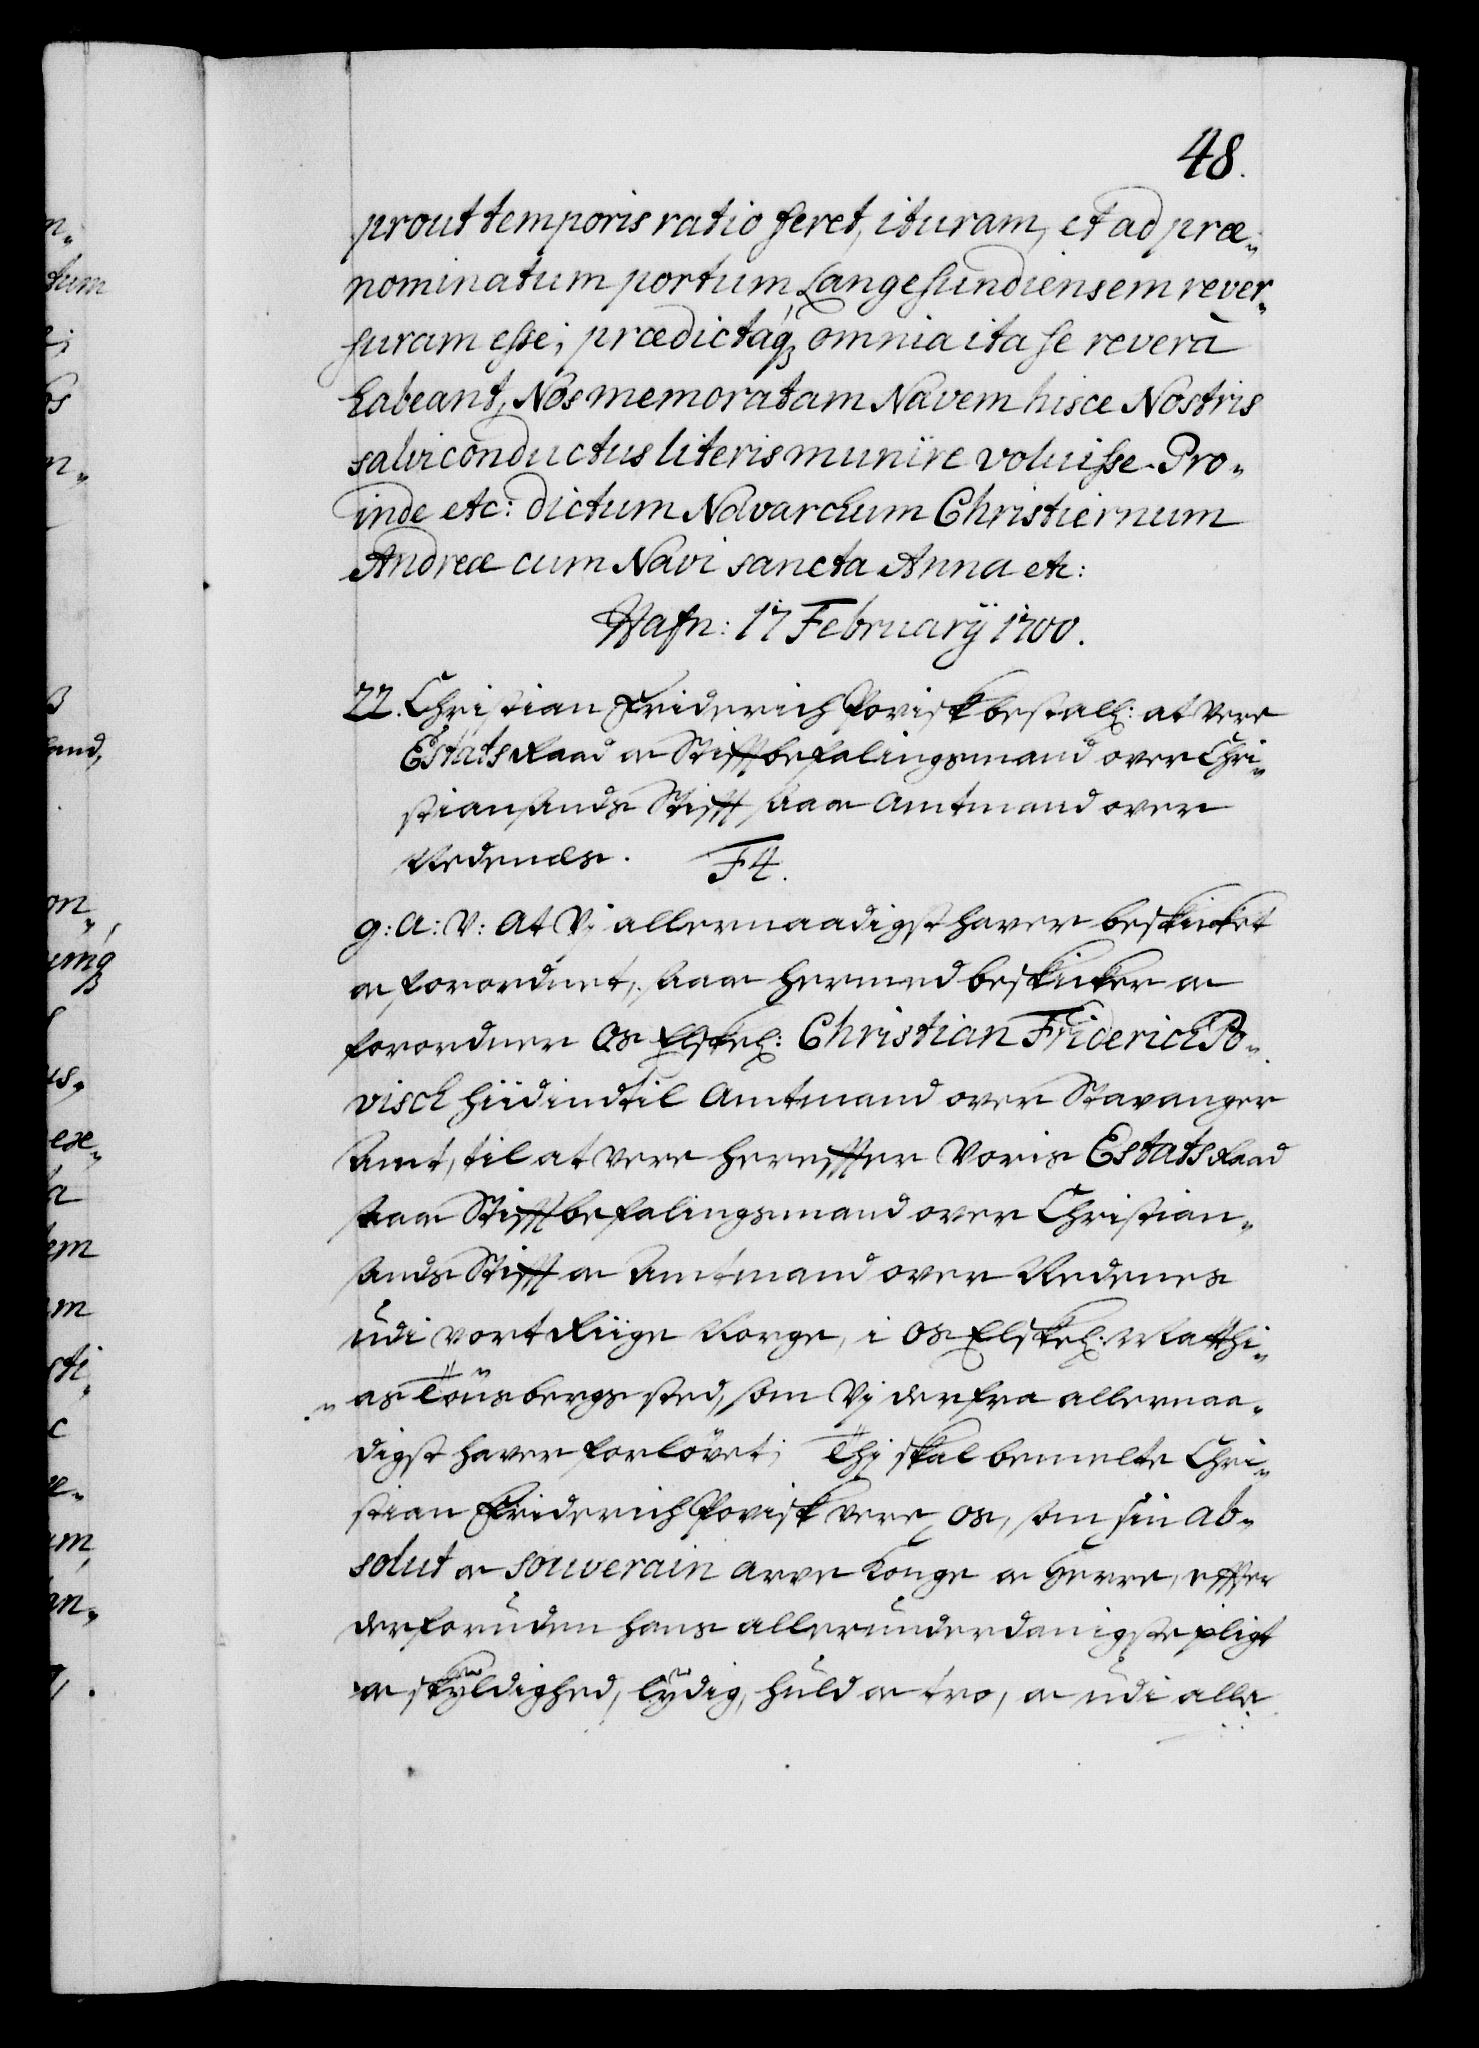 48.
prout temporis ratio feret, ituram, et ad præ„
nominatum portum Langesundiensem rever„
suram esse; prædictaq́; omnia ita se reverà
habeant, Nos memoratam Navem hisce Nostris
salvi conductus literis munire voluisse. Pro„
inde etc: dictum Navarchum Christiernum
Andreæ cum Navi sancta Anna etc:
Hafn: 17 Februarÿ 1700.
22. Christian Friderich Povisk bestall: at vere
Estats Raad oc Stifftbefalingsmand over Chri„
stiansands Stifft saa oc Amtmand over
Nedenæs. F4.
g: A: V: At Vi allernaadigst haver beskicket
oc forordnet, saa oc hermed beskicker oc
forordner Os Elskel: Christian Friderich Po„
visch hiidindtil Amtmand over Stavanger
Amt, til at vere hereffter Voris Estats Raad
saa oc Stifftbefalingsmand over Christian„
sands Stifft oc Amtmand over Nedenes
udi vort Riige Norge, i Os Elskel: Matthi„
as Tönsbergs sted, som Vj derfra allernaa„
digst haver forlövet; Thj skal bemelte Chri„
stian Friderich Povisk vere Os, som sin ab„
solut oc souverain arve Konge oc Herre, effter
derforuden hans allerunderdanigste pligt
oc skyldighed, lydig, huld oc tro, oc udi alle